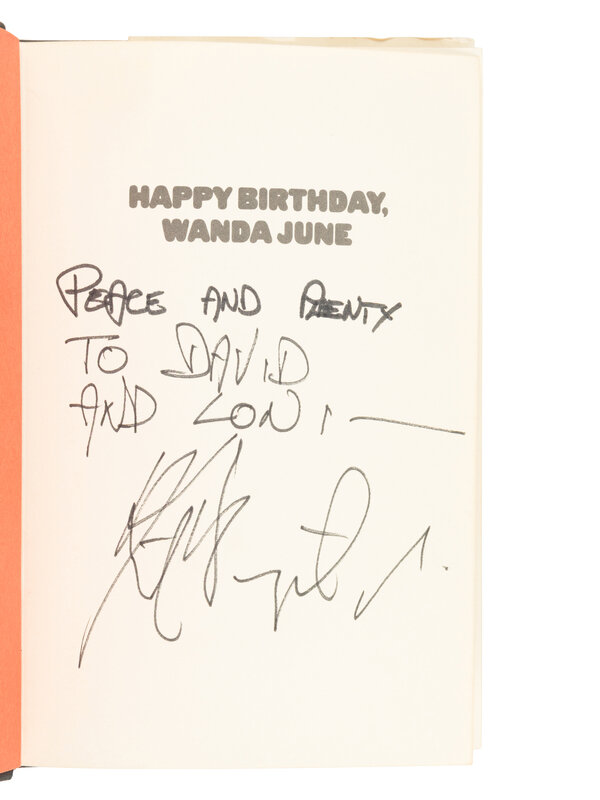 HAPPY BIRTHDAY,
WANDA JUNE
PEACE AND PLENTY
TO DAVID
AND LONI —